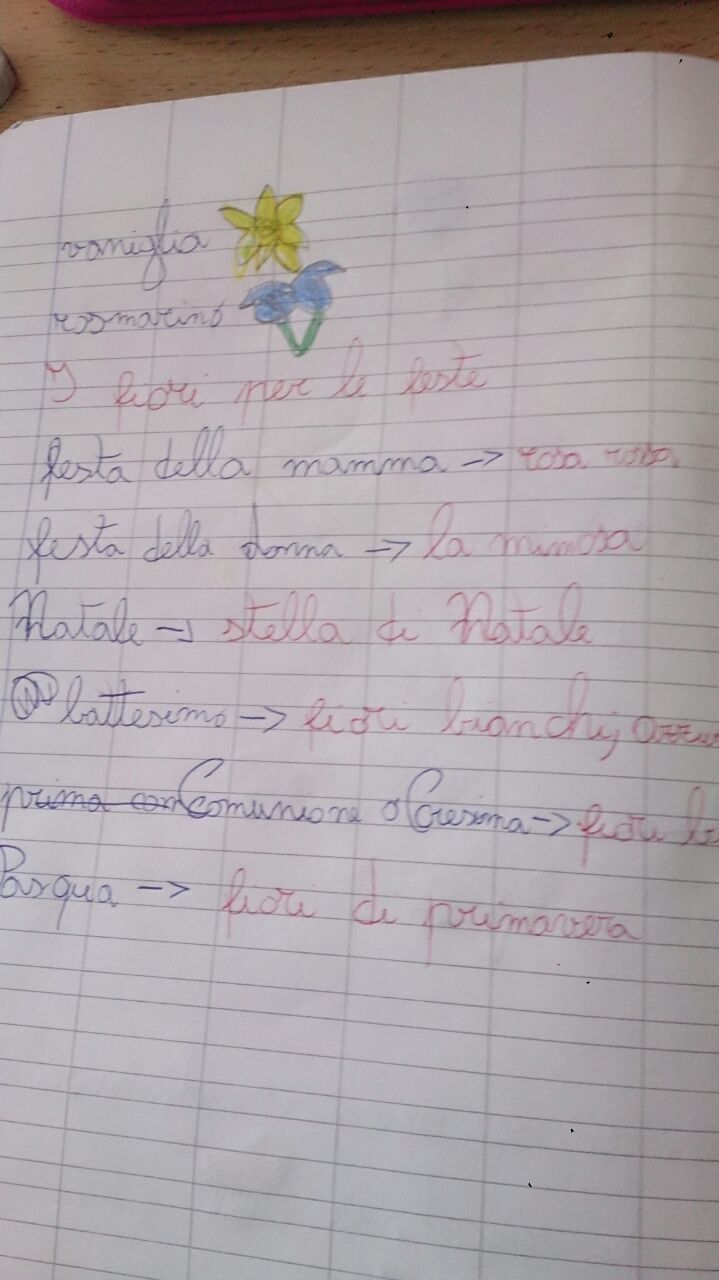 vaniglia
rosmarino
I fiori per le feste
festa della mamma -> rosa rossa
festa della donna -> la mimosa
Natale -> stella di Natale
battesimo -> fiori bianchi,
prima com Comunione o Cresima -> fiori
Pasqua -> fiori di primavera